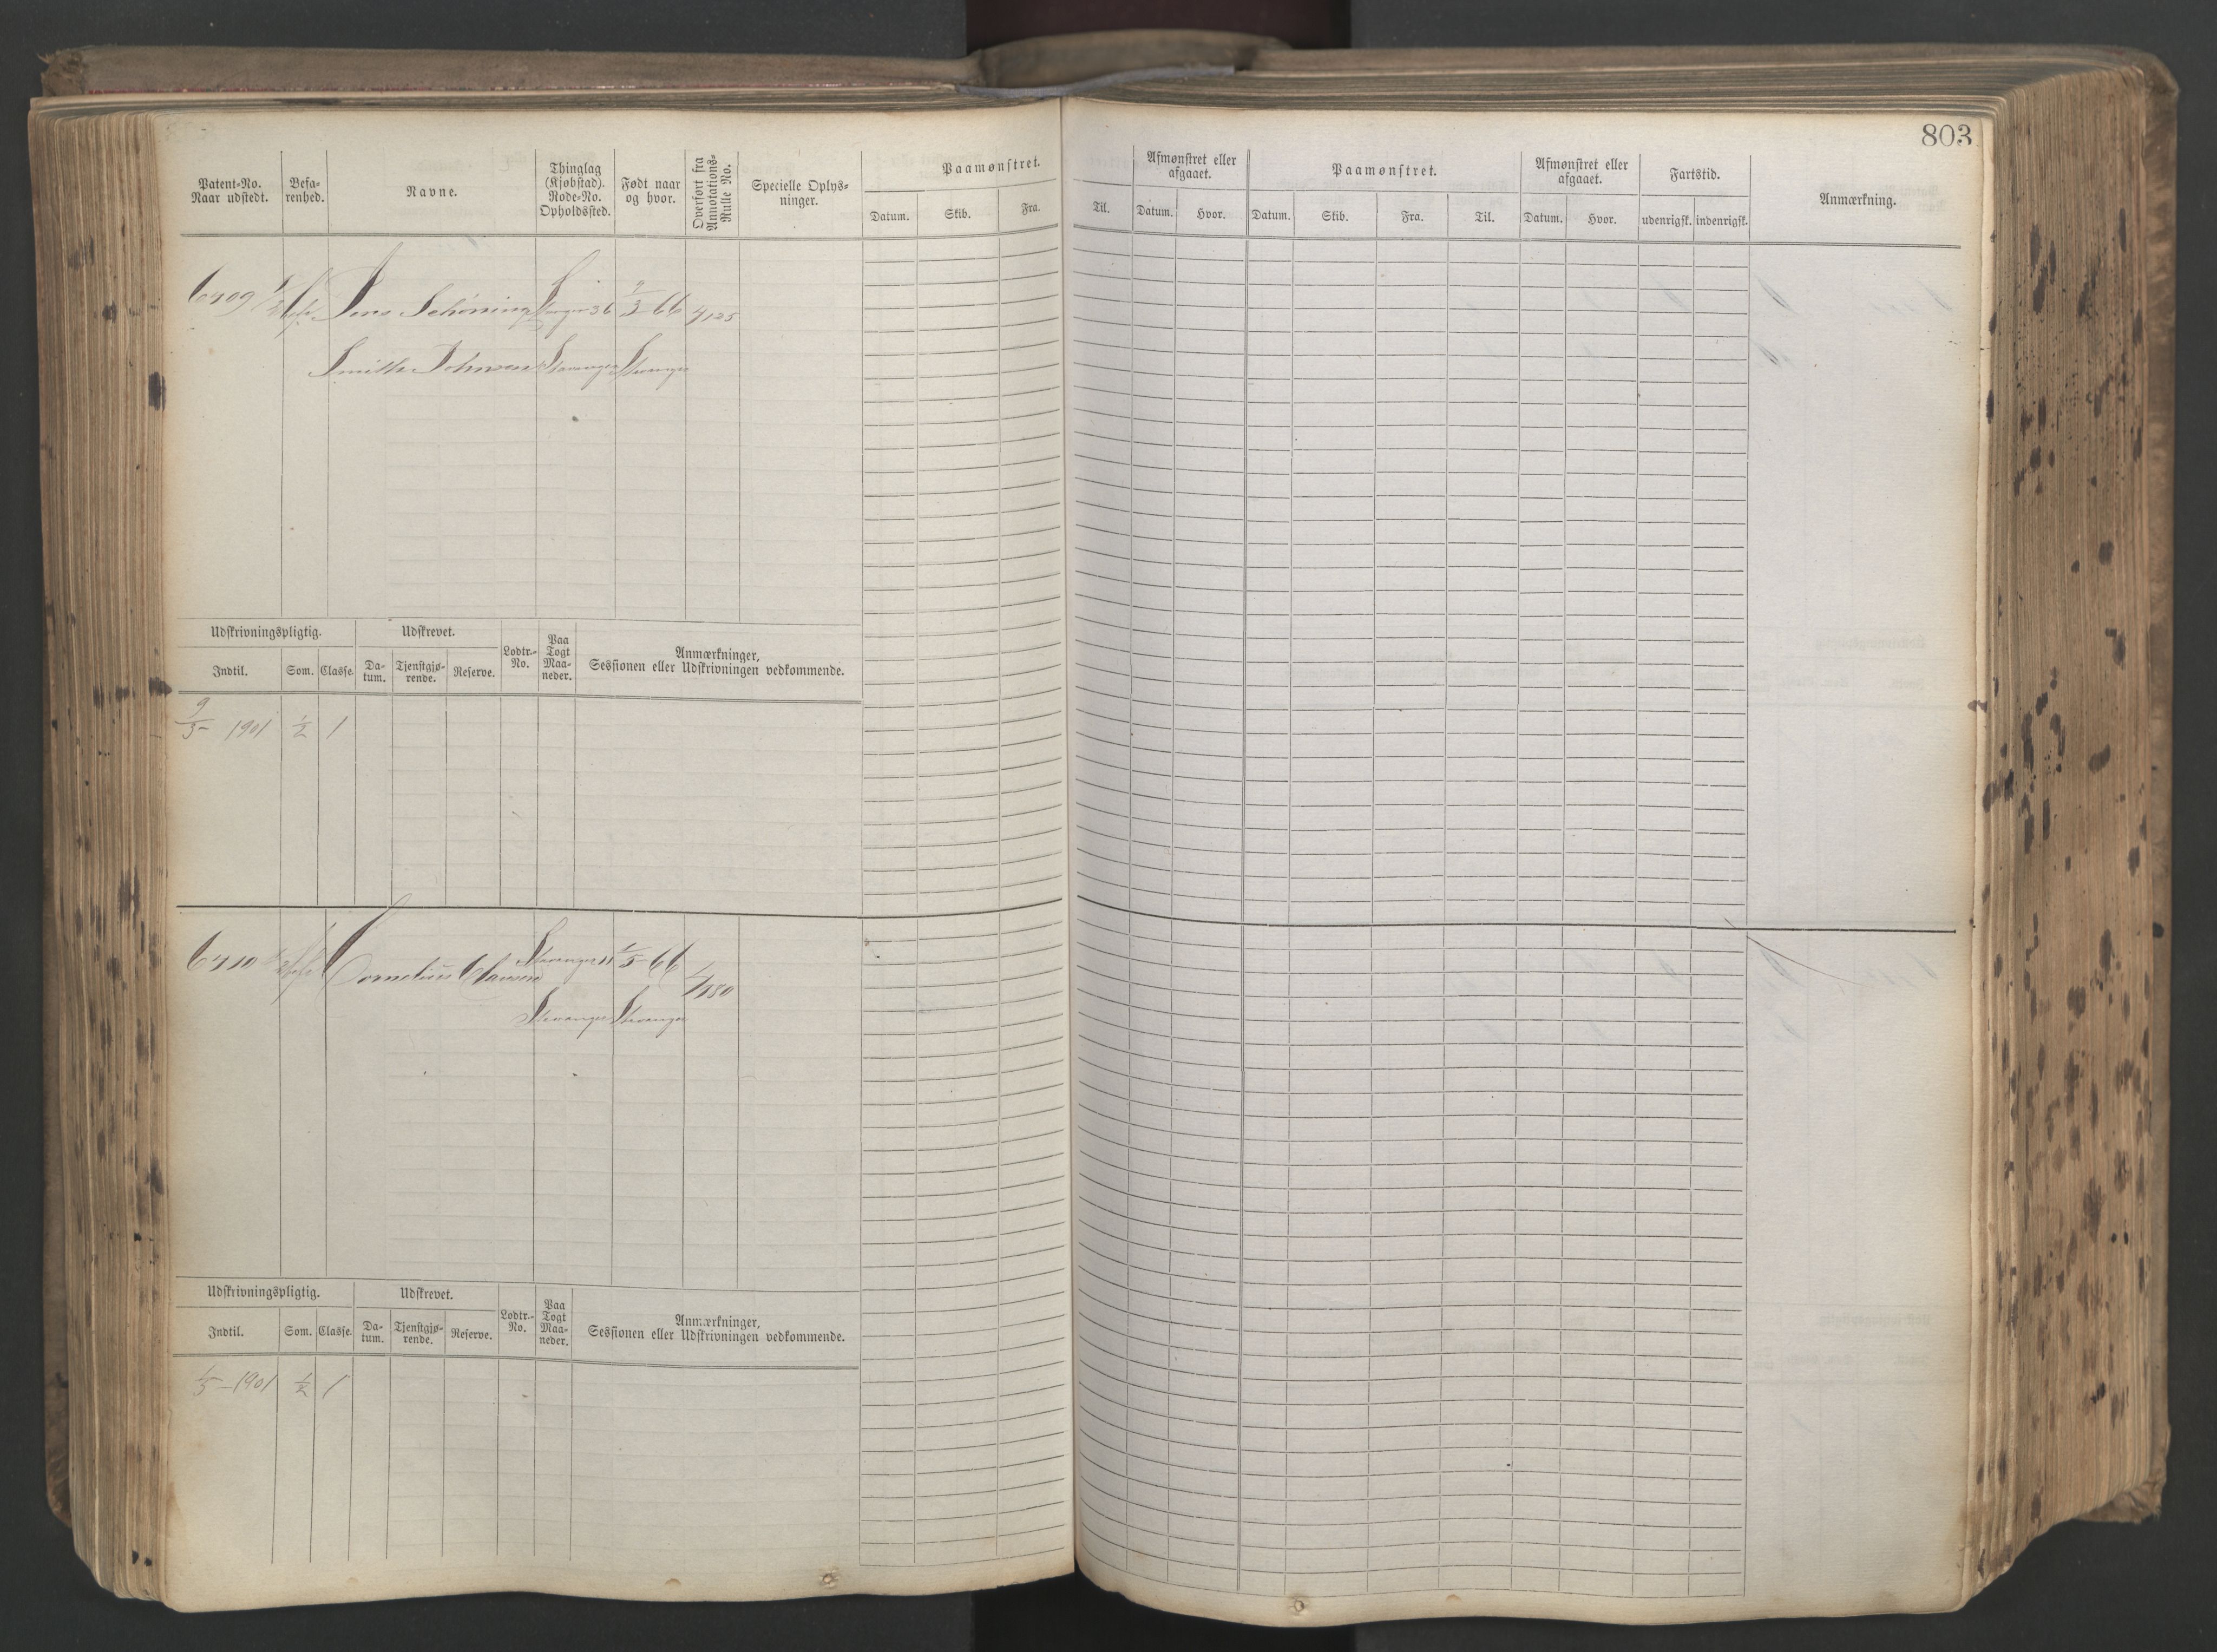 803
Patent-No. Naar udstedt.
Befa-renhed.
Navne.
Thinglag (Kjøbstad). Rode-No. Opholdssted.
Født naar og hvor.
Overført fra Annotations-Rulle No.
Specielle Oplys-ninger.
Paamønstret.
Datum. Skib. Fra. Til.
Afmønstret eller afgaaet.
Datum. Hvor.
Paamønstret.
Datum. Skib. Fra. Til.
Afmønstret eller afgaaet.
Datum. Hvor.
Fartstid.
udenrigsk. indenrigsk.
Anmærkning.
Jens Schöning 36 9/3 66
Smith Johnsen Stavanger Stavanger
Udskrivningspligtig. Udskrevet. Lodtr.-No. Paa Togt Maa-neder. Anmærkninger, Sessionen eller Udskrivningen vedkommende.
Indtil. Som. Classe. Da-tum. Tjenstgjø-rende. Reserve.
9/3 - 1901 1/2 1
Cornelius Clausen Stavanger 11 66
Stavanger Stavanger
Udskrivningspligtig. Udskrevet. Lodtr.-No. Paa Togt Maa-neder. Anmærkninger, Sessionen eller Udskrivningen vedkommende.
Indtil. Som. Classe. Da-tum. Tjenstgjø-rende. Reserve.
1901 1/2 1